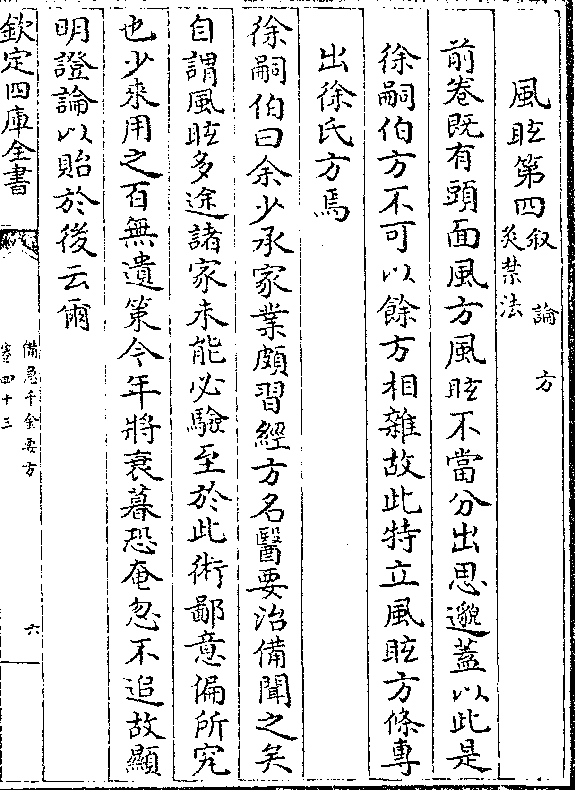 風眩第四叙 論 方
灸禁法
前卷既有頭面風方風眩不當分出思邈蓋以此是
徐嗣伯方不可以餘方相雜故此特立風眩方條專
出徐氏方焉
徐嗣伯曰余少承家業頗習經方名醫要治備聞之矣
自謂風眩多途諸家未能必驗至於此術鄙意偏所究
也少來用之百無遺策今年將衰暮恐奄忽不追故顯
明證論以貽於後云爾
欽定四庫全書
備急千金要方
卷四十三
六